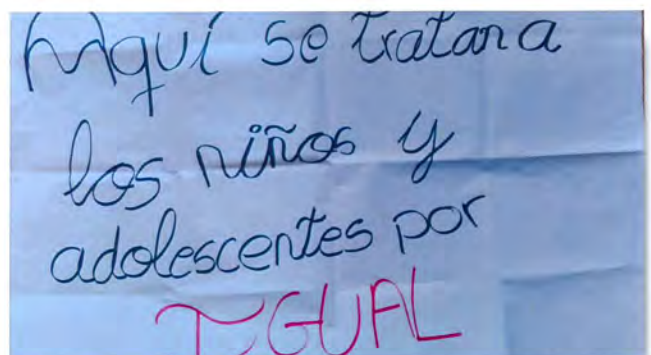 Aquí se tratan a
los niños y
adolescentes por
IGUAL